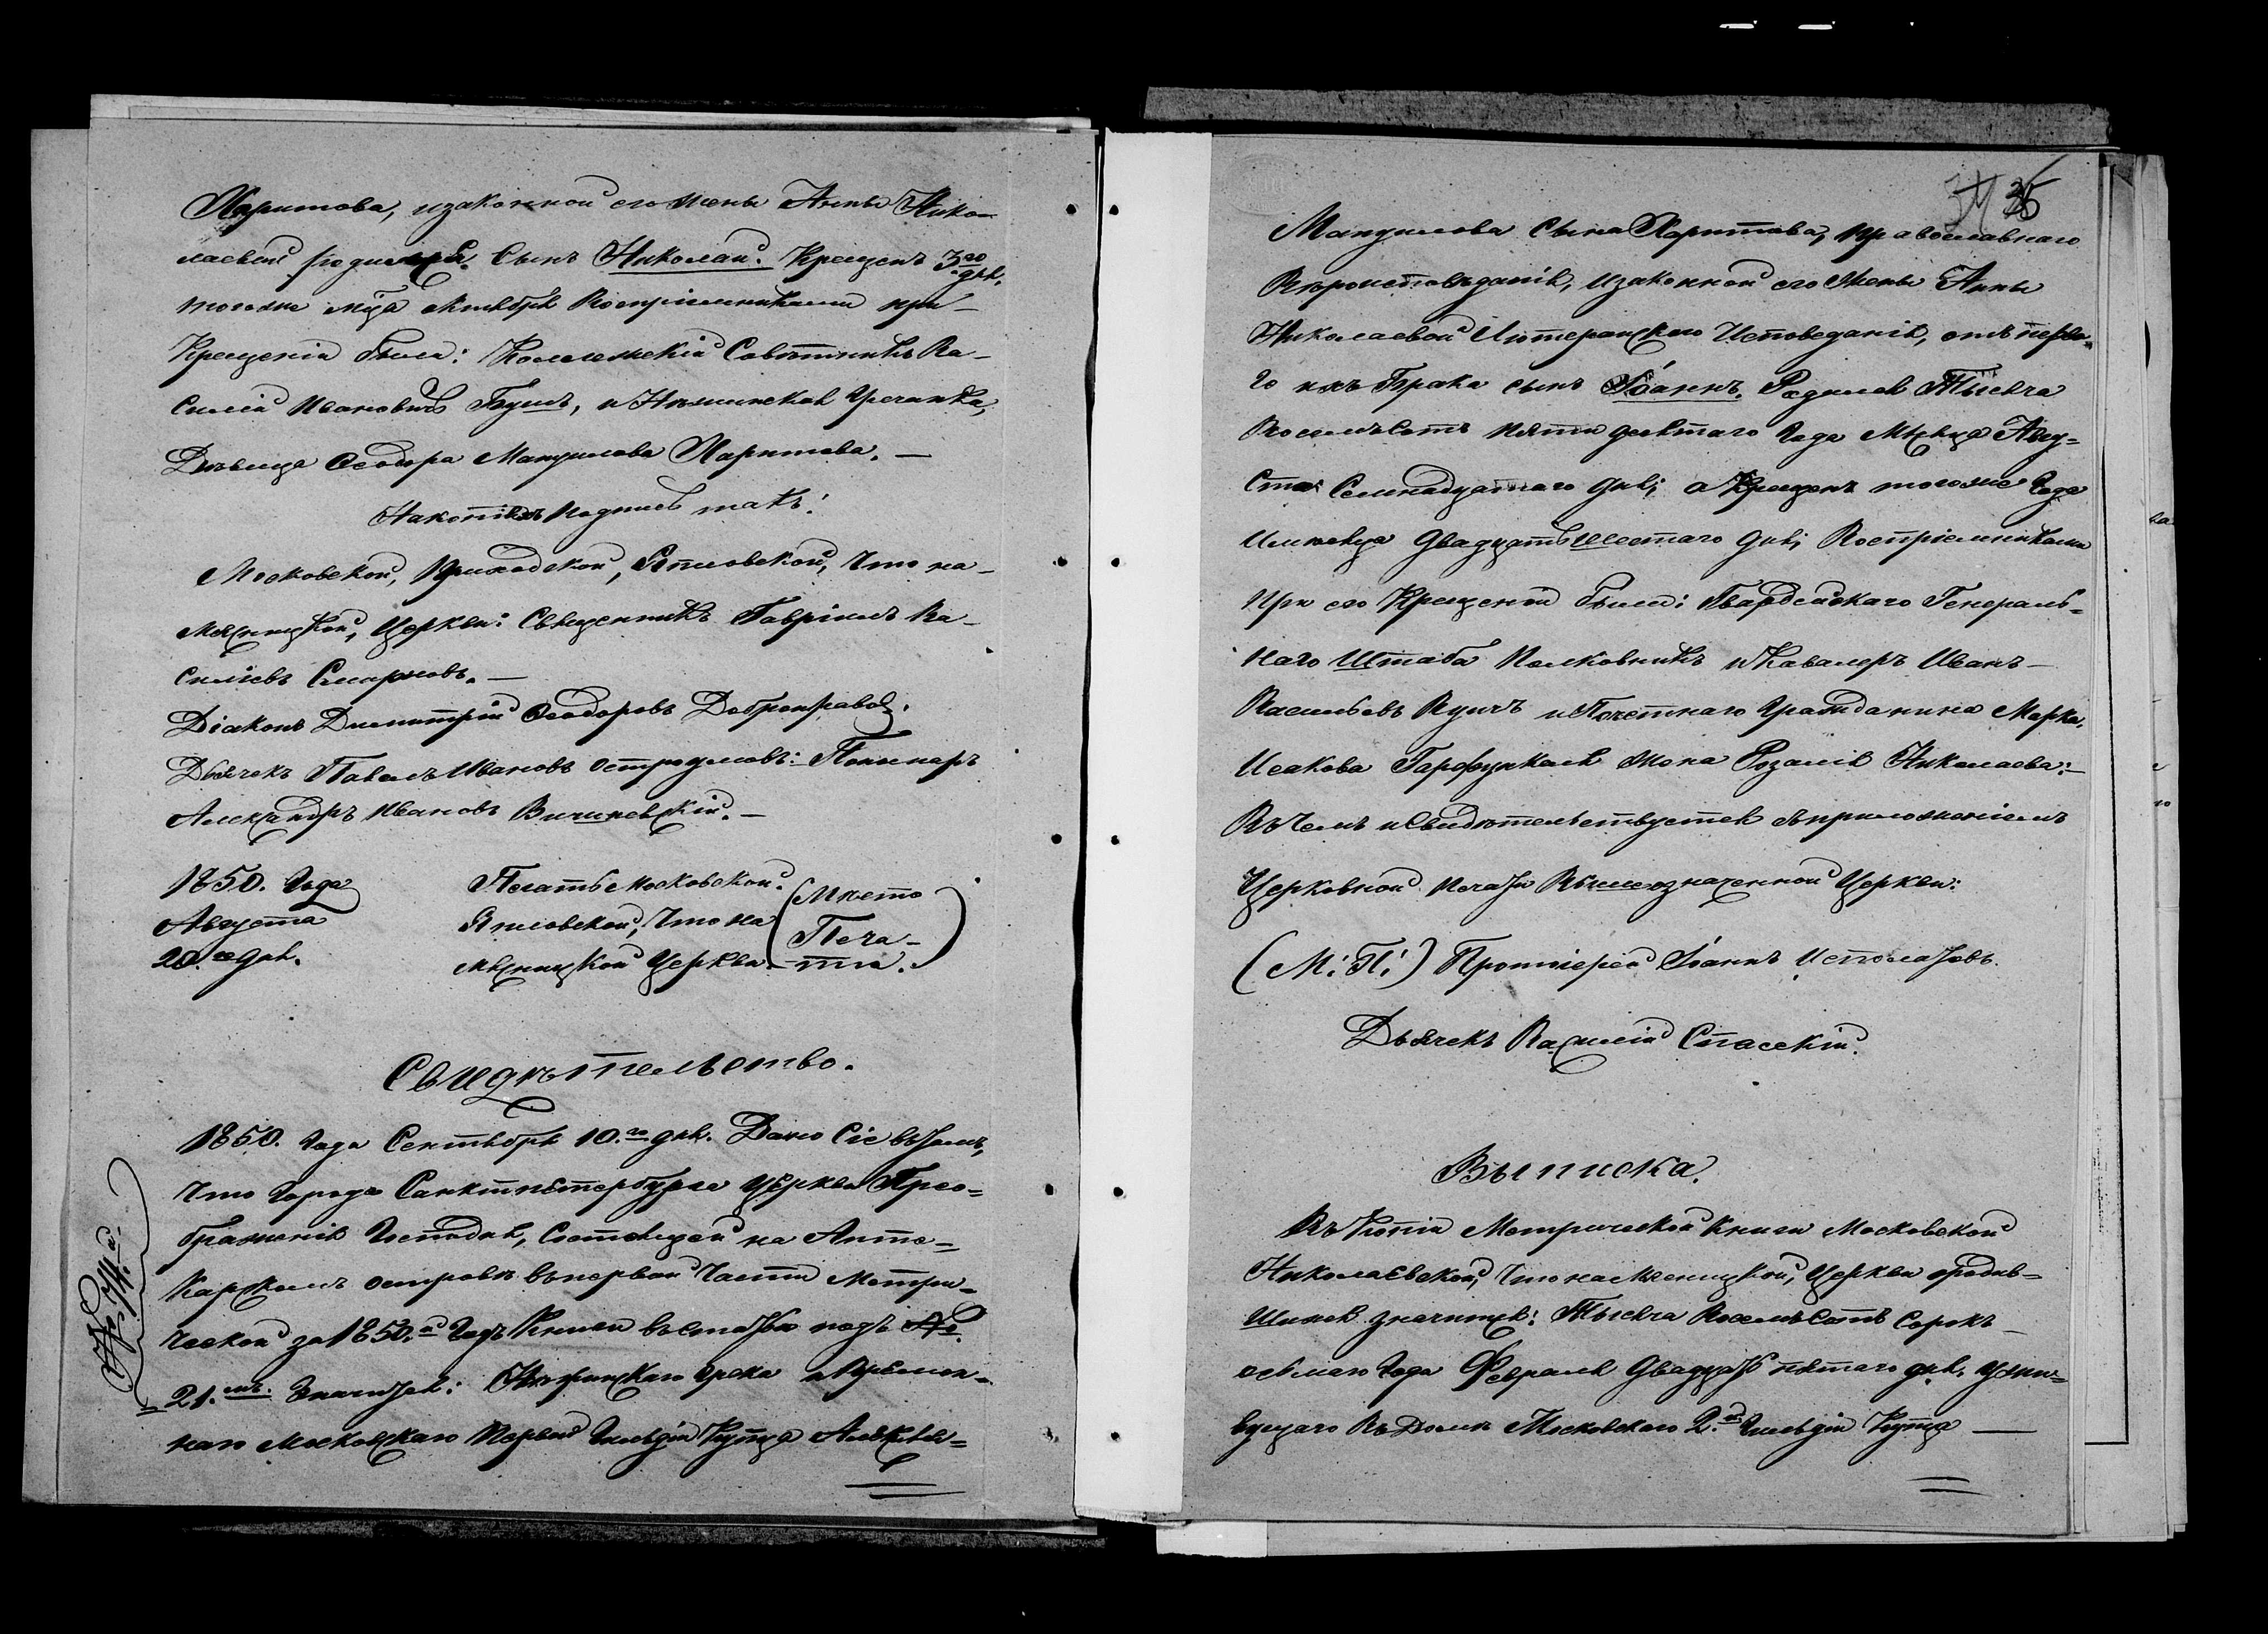 Харитова, изаконной его жены Анны Нико-
лаевой родился Сынъ Николай. Крещенъ 3го дня.
тогоже мца Октября Воспріемниками при
Крещеніи были: Коллежскій Совѣтникъ Ва-
силій Ивановичъ Бушъ, и Нѣжинская Гречанка,
Дѣвица Ѳеодора Мануилова Харитова. —
На копіи подписъ такъ:
Московской, Приходской, Евпловской, Что на
Мясницкой, Церкви: Священникъ Гавріилъ Ва-
силіевъ Смирновъ. —
Діаконъ Димитрій Ѳеодоровъ Добронравов.
Дьячекъ Павелъ Ивановъ Остроумовъ: Пономаръ
Александръ Ивановъ Вишневскій. —
1850. Года
Августа
20го дня.
Печать Московской.
Евпловской, Что на
Мясницкой Церкви.
(Мѣсто
Печа-
ти.)
Свидѣтельство.
1850. Года Сентября 10го дня. Дано Сіе въ томъ,
Что Города Санктпетербурга Церкви Прео-
браженія Господня, Состоящей на Апте-
Карскомъ островѣ въ первой Части Метри-
ческой за 1850.й Годъ Книги въ статьѣ подъ №
21.мъ Значится: Нѣжинскаго Грека и Времен-
наго Московскаго Первой Гильдіи Купца Алексѣя
35
Мануилова Сына Харитова, православнаго
Вѣроисповѣданія, изаконной его Жены Анны
Николаевой Лютеранскаго Исповеданія, отъ перва-
го ихъ Брака сынъ Іоаннъ, Родился Тысяча
Восемьсотъ пяти десятаго Года Мѣсяца Авгу-
ста Семнадцатаго дня; а Крещенъ тогоже Года
имѣсяца двадцать шестаго дня; Воспріемниками
при его Крещеній были: Гвардейскаго Генераль-
наго Штаба Полковникъ и Кавалеръ Иванъ
Васильевъ Вуичъ и Почетнаго Гражданина Марка
Исакова Гарфункеля жена Розалія Николаева:
Въ Чемъ и Свидѣтельствуется съ приложеніемъ
Церковной печати Вышеозначенной Церкви:
(М. П.) Протоіерей Іоаннъ Исполатовъ.
Дьячекъ Василій Спасскій.
Выписка.
Въ Копіи Метрической Книги Московской
Николаевской, Что на Мясницкой, Церкви о родив-
шихся значится: Тысяча Восемьсотъ Сорокъ
осьмаго Года Февраля двадцать пятаго дня, у жи-
вущаго Въ Домѣ Московскаго 2.й Гильдіи Купца